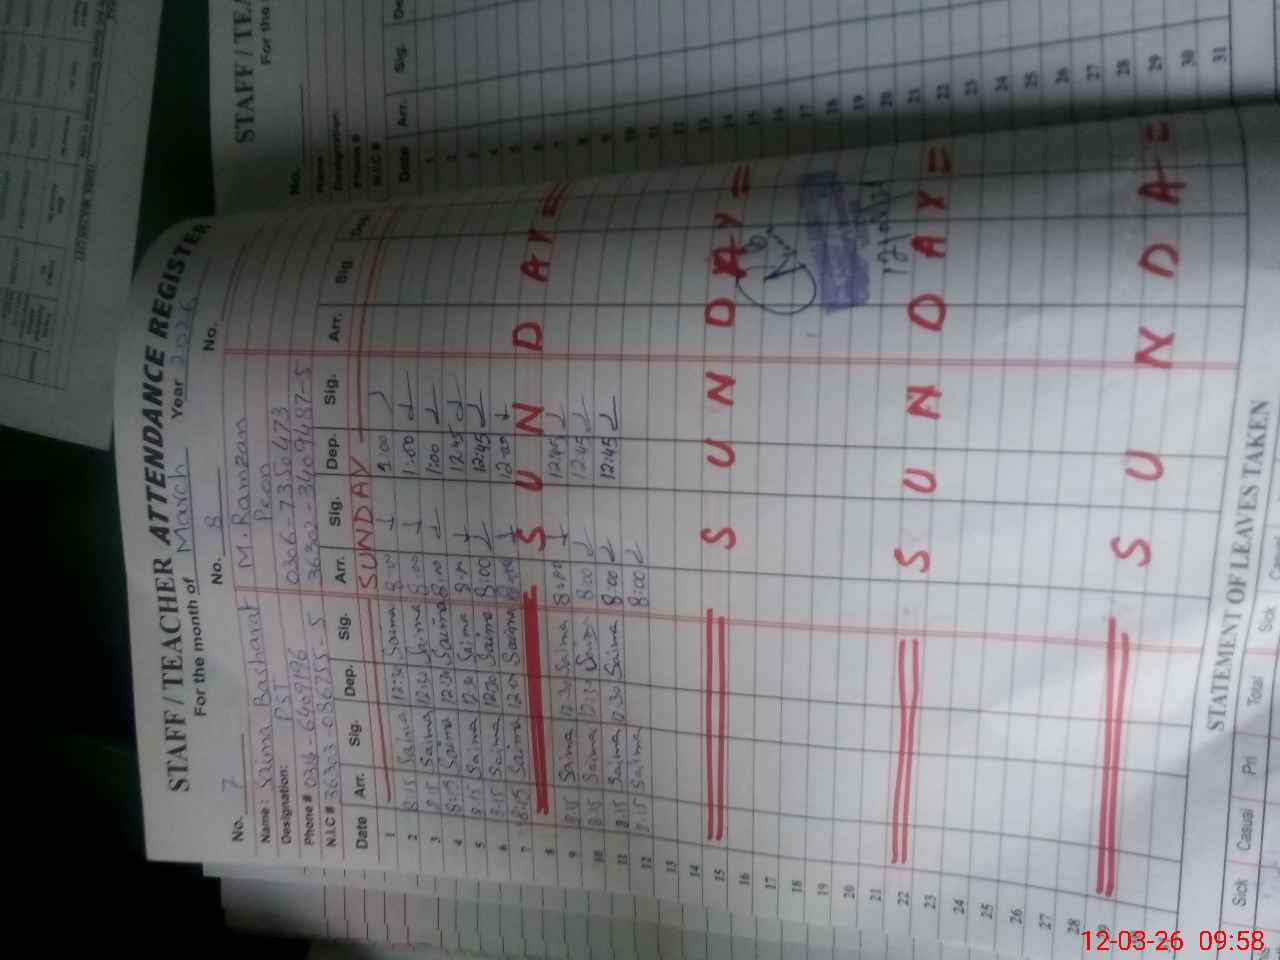 STAFF / TEACHER ATTENDANCE REGISTER
For the month of March Year 2026
No. 7 No. 8 No.
Name: Saima Basharat M. Ramzan
Designation: PST Peon
Phone # 0306-7350473
N.I.C # 36303-0367155-5 36302-3409487-5
Date Arr. Sig. Dep. Sig. Arr. Sig. Dep. Sig. Arr. Sig. Dep.
1 SUNDAY
2 8:15 Saima 12:30 Saima 8:00 1:00
3 8:15 Saima 12:30 Saima 8:00 1:00
4 8:15 Saima 12:30 Saima 8:00 1:00
5 8:15 Saima 12:30 Saima 8:00 12:45
6 8:15 Saima 12:30 Saima 8:00 12:45
7 8:15 Saima 12:00 Saima 8:00 12:00
8 SUNDAY
9 8:15 Saima 12:30 Saima 8:00 12:45
10 8:15 Saima 12:30 Saima 8:00 12:45
11 8:15 Saima 12:30 Saima 8:00 12:45
12 8:15 Saima 8:00
13
14
15 SUNDAY
16
17
18
19
20
21
22 SUNDAY
23
24
25
26
27
28
29 SUNDA
STATEMENT OF LEAVES TAKEN
Sick Casual Pri Total Sick Casual
STAFF / TEA
For the
No.
Name
Designation:
Phone #
N.I.C #
Date Arr. Sig. De
1
2
3
4
5
6
7
8
9
10
11
12
13
14
15
16
17
18
19
20
21
22
23
24
25
26
27
28
29
30
31
12-03-26 09:58